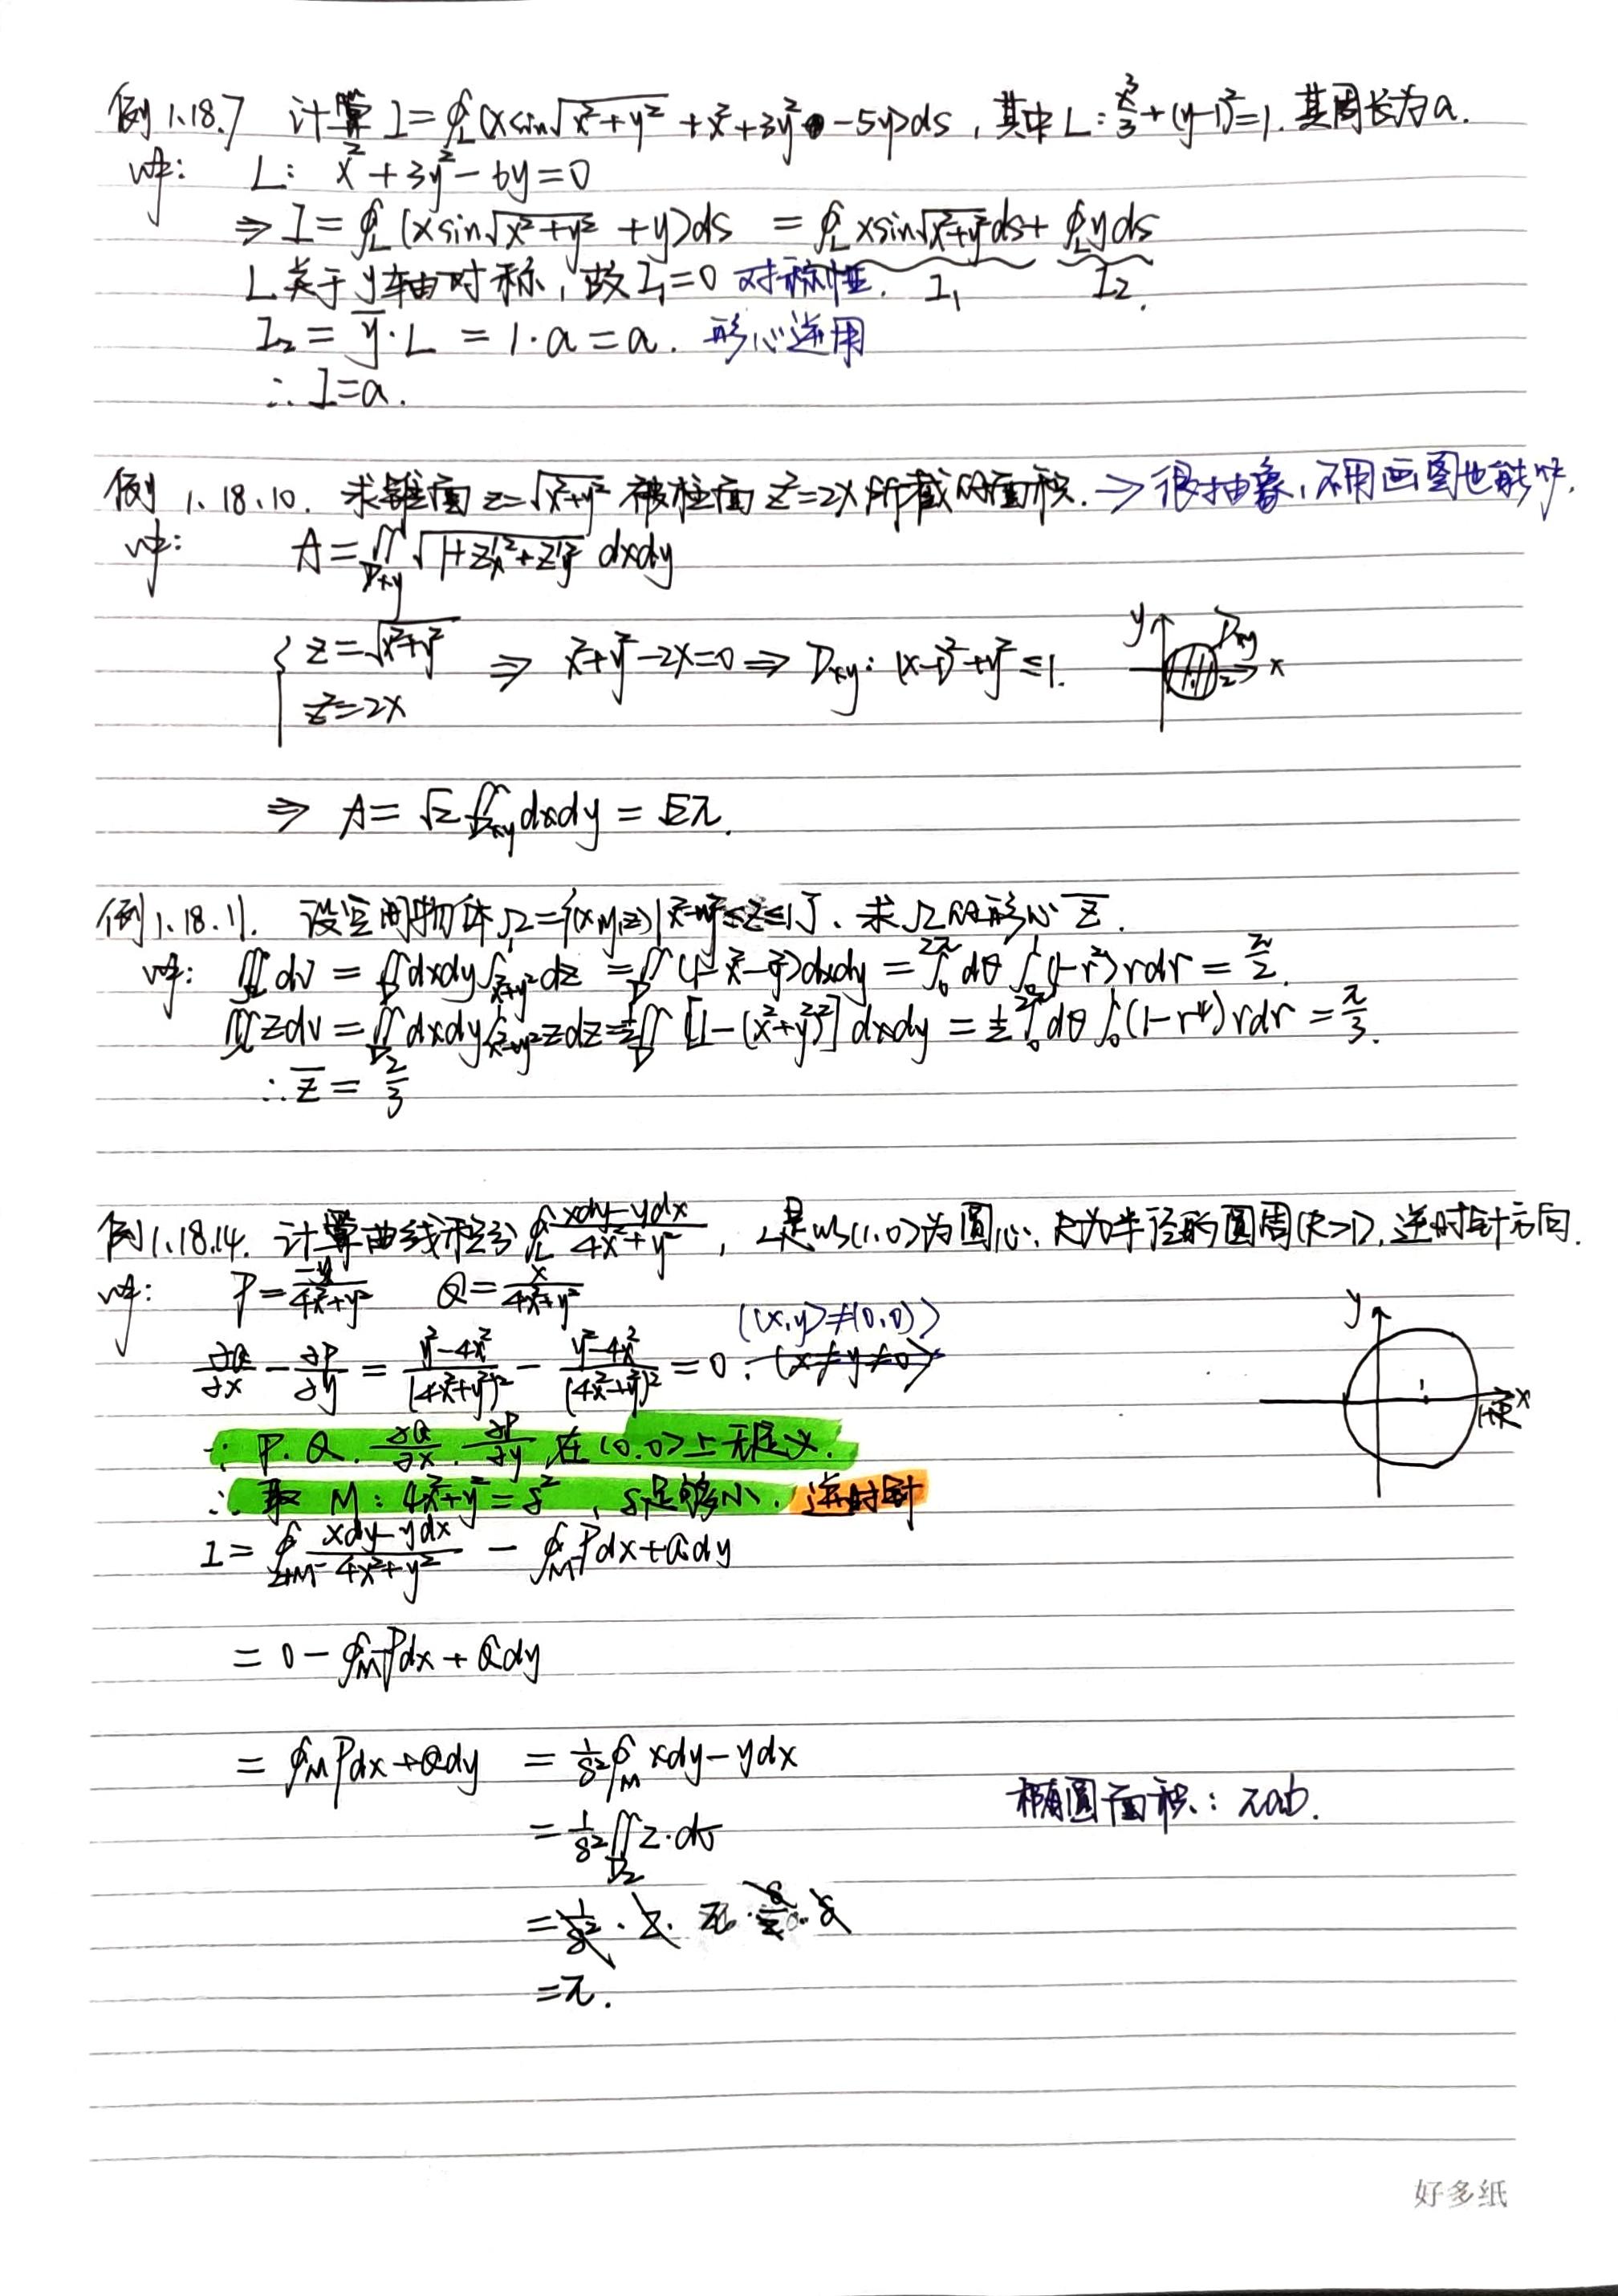 例1.18.7 计算 I=∮_L(xsin√(x²+y²)+x²+3y²-5y)ds, 其中L: x²/3+(y-1)²=1. 其周长为a.
解: L: x²+3y²-6y=0
⇒ I=∮_L(xsin√(x²+y²)+y)ds = ∮_L xsin√(x²+y²)ds+∮_L yds
L关于y轴对称, 故I₁=0 对称性. I₁ I₂.
I₂=ȳ·L=1·a=a. 形心逆用
∴I=a.
例1.18.10. 求锥面z=√(x²+y²)被柱面z²=2x所截的面积. ⇒很抽象, 不用画图也能解.
解: A=∬_Dxy √(1+z'x²+z'y²) dxdy
{ z=√(x²+y²) ⇒ x²+y²-2x=0 ⇒ Dxy: (x-1)²+y²≤1. y Dxy
z²=2x 1 2 x
⇒ A=√2∬_Dxy dxdy=√2π.
例1.18.11. 设空间物体Ω={(x,y,z)|x²+y²≤z≤1}. 求Ω的形心z̄.
解: ∭_Ω dv=∬_D dxdy∫_{x²+y²}^1 dz=∬_D(1-x²-y²)dxdy=∫₀^{2π}dθ∫₀¹(1-r²)rdr=π/2.
∭_Ω zdv=∬_D dxdy∫_{x²+y²}^1 zdz=½∬_D[1-(x²+y²)²]dxdy=½∫₀^{2π}dθ∫₀¹(1-r⁴)rdr=π/3.
∴z̄=2/3
例1.18.14. 计算曲线积分∮_L (xdy-ydx)/(4x²+y²), L是以(1,0)为圆心, R为半径的圆周(R>1), 逆时针方向.
解: P=-y/(4x²+y²) Q=x/(4x²+y²)
((x,y)≠(0,0))
∂Q/∂x-∂P/∂y=(y²-4x²)/(4x²+y²)²-(y²-4x²)/(4x²+y²)²=0. (x≠y≠0)
y 1 1+R x
∵P. Q. ∂Q/∂x. ∂P/∂y 在(0,0)上无定义.
∴取M: 4x²+y²=δ², δ足够小. 逆时针
I=∮_{L+M⁻}(xdy-ydx)/(4x²+y²)-∮_{M⁻}Pdx+Qdy
=0-∮_{M⁻}Pdx+Qdy
=∮_M Pdx+Qdy =1/δ²∮_M xdy-ydx
椭圆面积: πab.
=1/δ²∬_{D₂}2·dσ
=1/δ²·2·π·δ/2·δ
=π.
好多纸